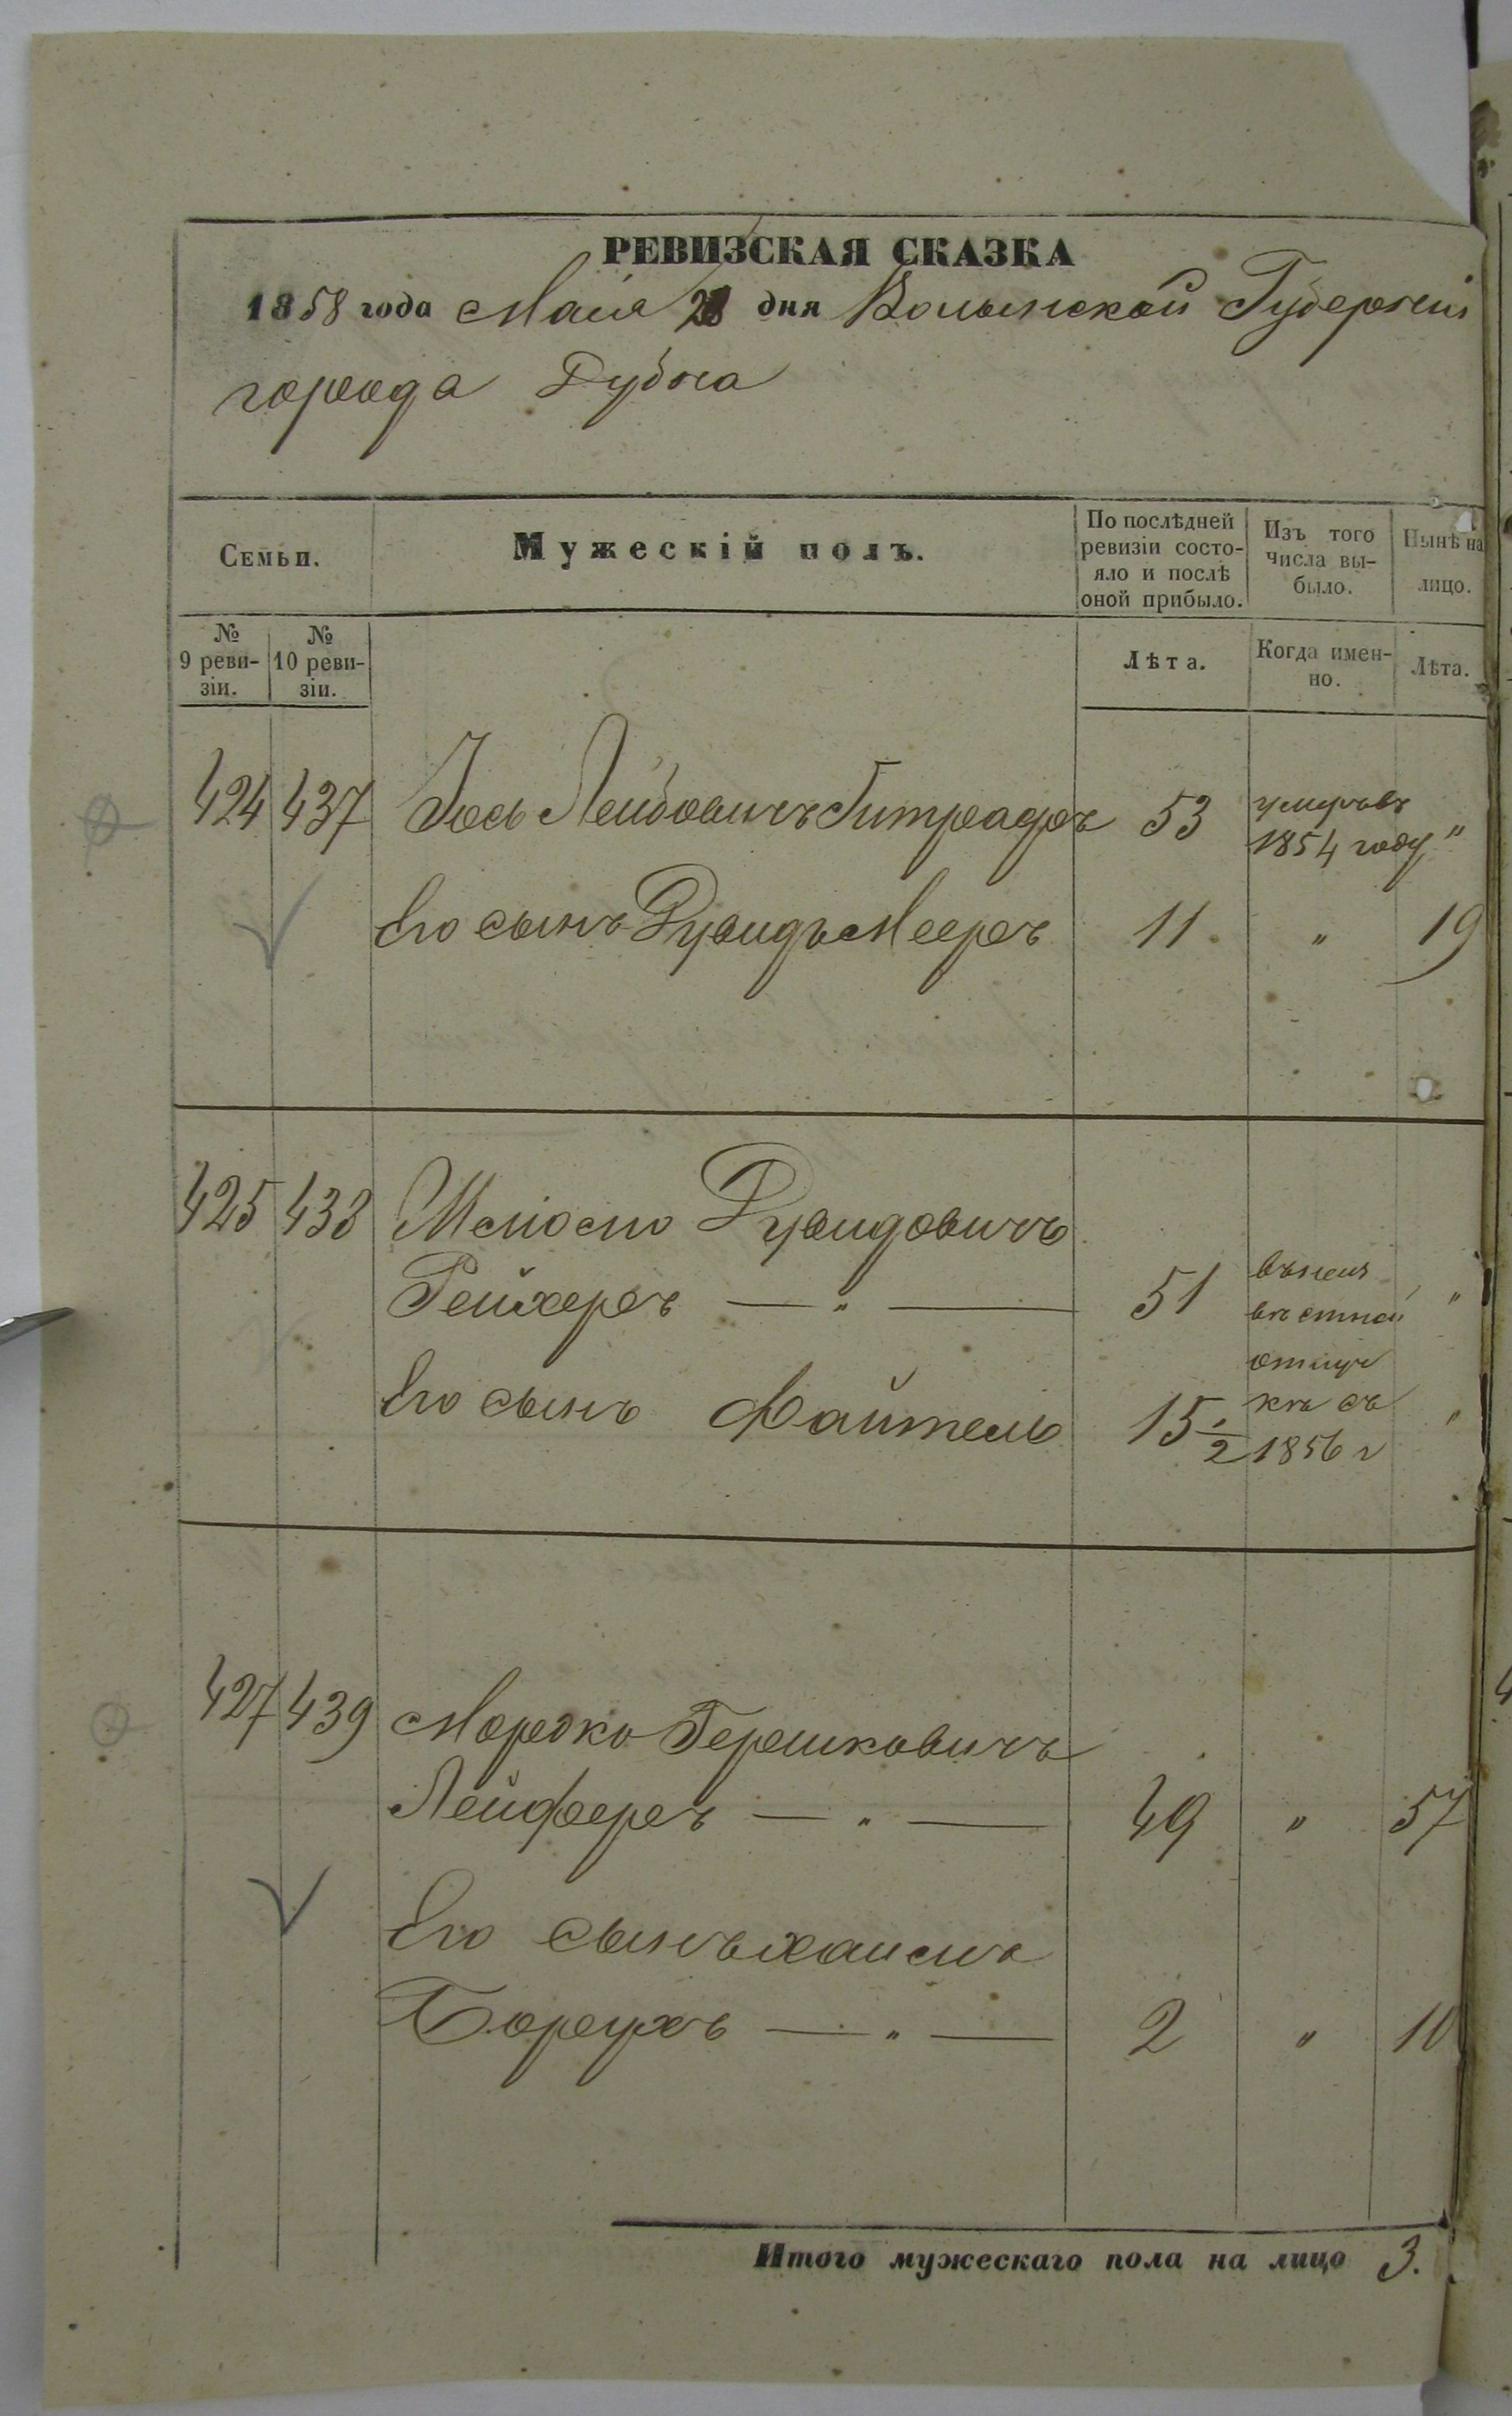 РЕВИЗСКАЯ СКАЗКА
1858 года Маія 28 дня Волынской Губерніи
города Дубна
Семьи.
Мужескій полъ.
По послѣдней ревизіи состо-
яло и послѣ
оной прибыло.
Изъ того
числа вы-
было.
Нынѣ на
лицо.
№
9 реви-
зіи.
№
10 реви-
зіи.
Лѣта.
Когда имен-
но.
Лѣта.
424 437 Іось Лейбовичъ 53 умеръ въ
1854 году "
Его сынъ Дувидъ Мееръ 11 " 19
425 438 Дувидовичъ
Рейхеръ — " — 51 "
Его сынъ Файтель 15 1/2 "
отлуч
кѣ съ
1856 г
427 439 Мордко Гершковичъ
Лейферъ — " — 49 " 57
Его сынъ Хаимъ
Борухъ — " — 2 " 10
Итого мужескаго пола на лицо 3.